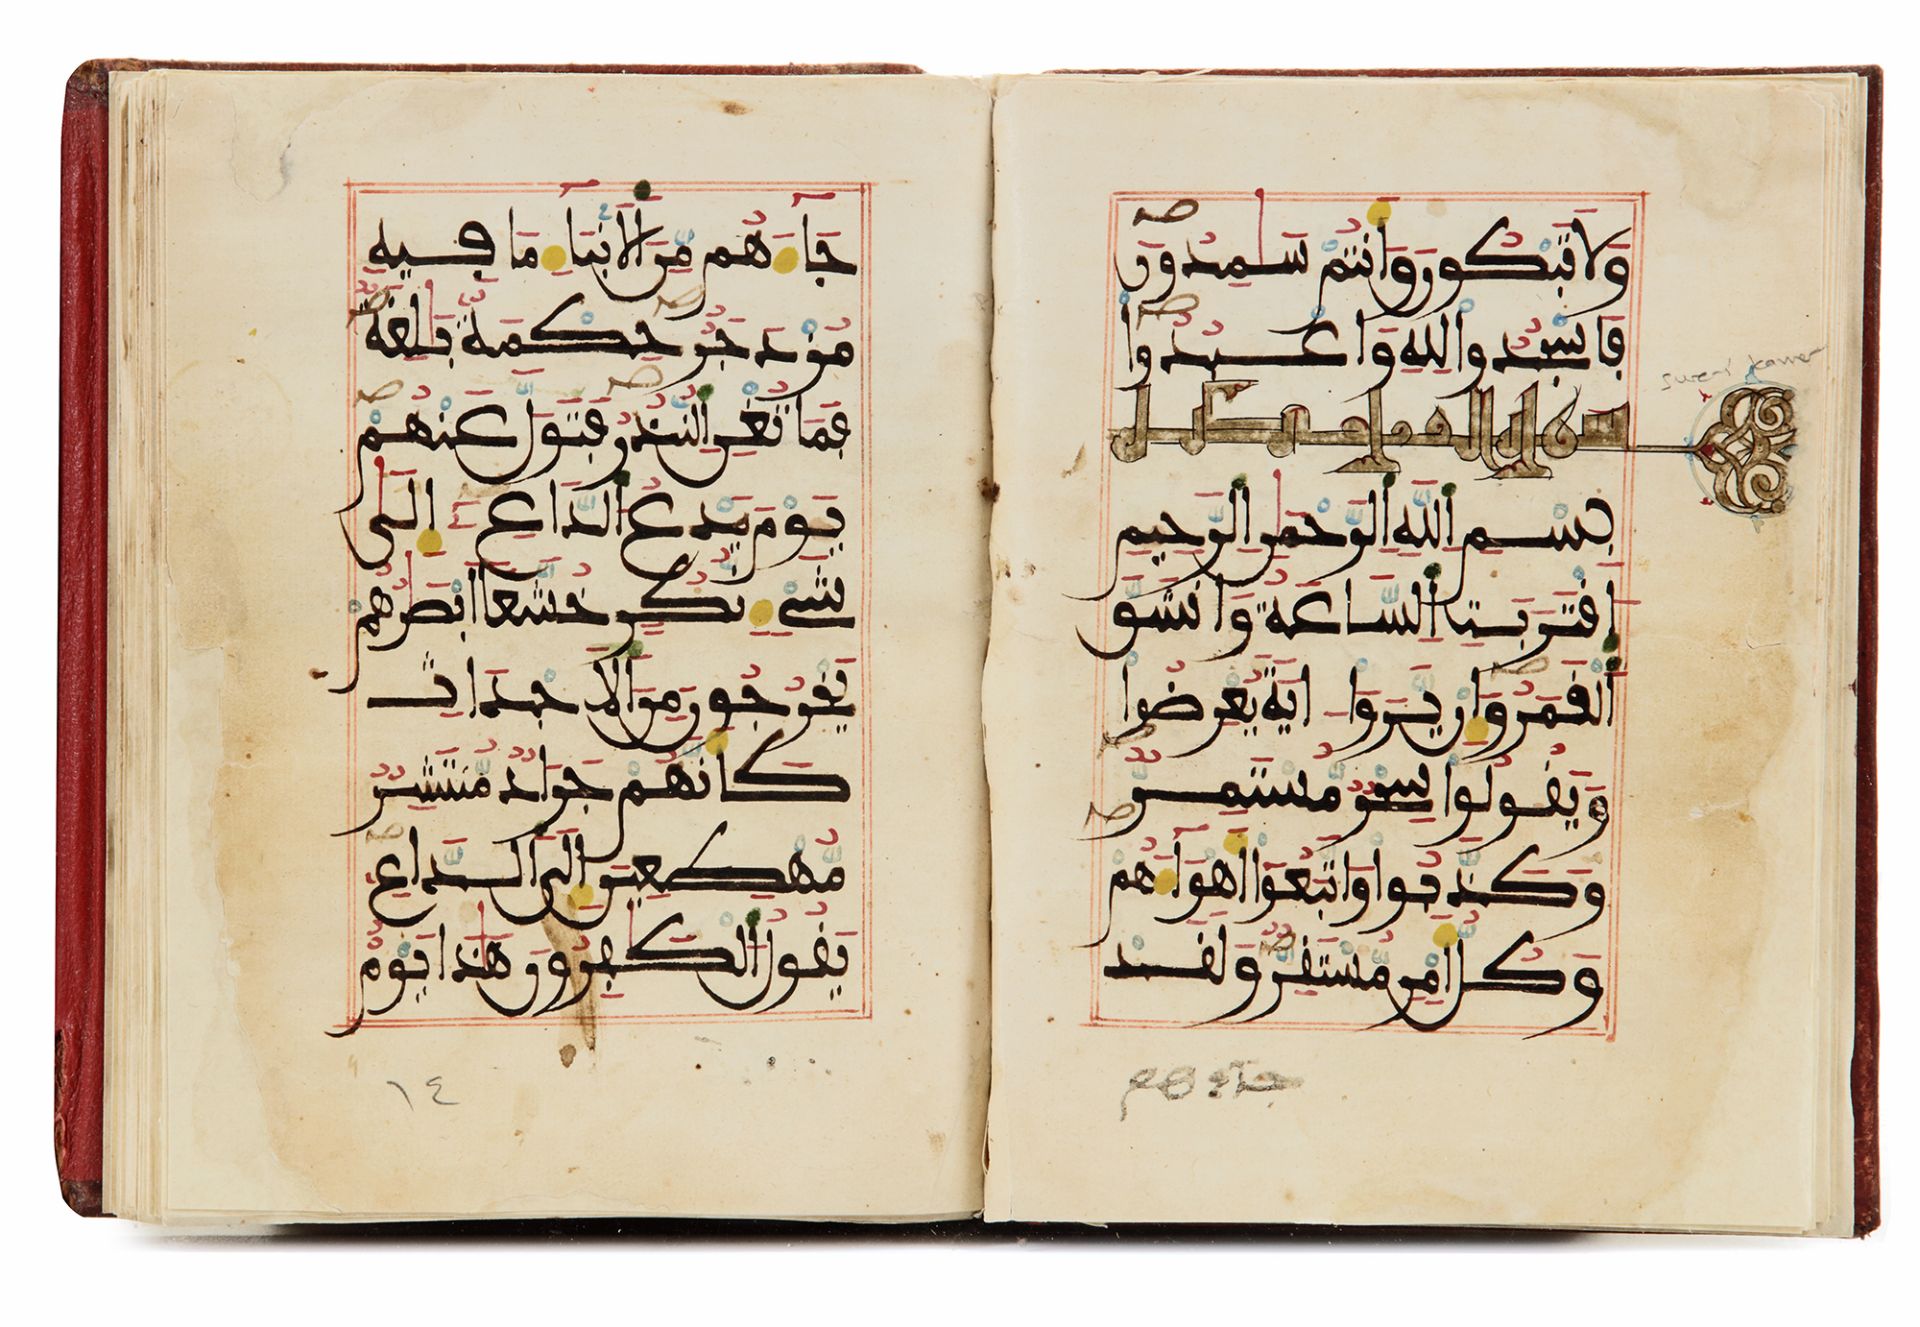 وَلَا تَبْكُونَ وَأَنتُمْ سَٰمِدُونَ
فَاسْجُدُوا لِلهِ وَاعْبُدُوا
سورة القمر
surat kamer
بِسْمِ اللَّهِ الرَّحْمَٰنِ الرَّحِيمِ
اقْتَرَبَتِ السَّاعَةُ وَانشَقَّ
الْقَمَرُ وَإِنْ يَّرَوْا ءَايَةً يُعْرِضُوا
وَيَقُولُوا سِحْرٌ مُّسْتَمِرٌّ
وَكَذَّبُوا وَاتَّبَعُوا أَهْوَآءَهُمْ
وَكُلُّ أَمْرٍ مُّسْتَقِرٌّ وَلَقَدْ
جآءهم
جَآءَهُم مِّنَ الْأَنۢبَآءِ مَا فِيهِ
مُزْدَجَرٌ حِكْمَةٌ بَٰلِغَةٌ
فَمَا تُغْنِ النُّذُرُ فَتَوَلَّ عَنْهُمْ
يَوْمَ يَدْعُ الدَّاعِ إِلَىٰ
شَيْءٍ نُّكُرٍ خُشَّعًا أَبْصَٰرُهُمْ
يَخْرُجُونَ مِنَ الْأَجْدَاثِ
كَأَنَّهُمْ جَرَادٌ مُّنتَشِرٌ
مُّهْطِعِينَ إِلَى الدَّاعِ
يَقُولُ الْكَٰفِرُونَ هَٰذَا يَوْمٌ
١٤